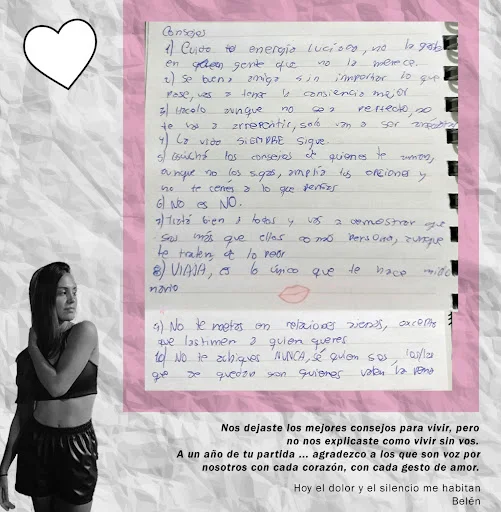 Consejos
1) Cuida tu energía Luciana, no la gastes
en gente que no la merece.
2) Se buena amiga sin importar lo que
pase, vas a tener la consiencia mejor
3) Hacelo aunque no sea perfecto, no
te vas a arrepentir, solo van a ser
4) La vida SIEMPRE sigue.
5) Escuchá los consejos de quienes te aman,
aunque no los sigas, amplia tus opciones y
no te cerres a lo que pensas
6) NO es NO.
7) Tratá bien a todos y vas a demostrar que
sos más que ellos como persona, aunque
te traten de lo peor
8) VIAJA, es lo único que te hace millo
nario
9) No te metas en relaciones ajenas, excepto
que lastimen a quien queres
10) No te achiques NUNCA, sé quien sos,
que se quedan son quienes valen la pena
Nos dejaste los mejores consejos para vivir, pero
no nos explicaste como vivir sin vos.
A un año de tu partida ... agradezco a los que son voz por
nosotros con cada corazón, con cada gesto de amor.
Hoy el dolor y el silencio me habitan
Belén